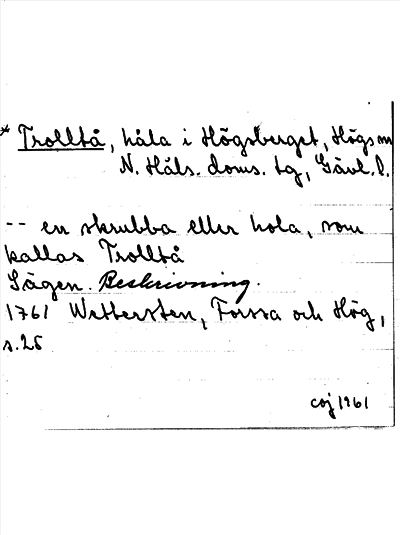 * Trolltå, håla i Högsberget, Högs sn
N. Häls. doms. tg, Gävl. l.
-- en skrubba eller hola, som
kallas Trolltå
Sägen. Beskrivning.
1761 Wettersten, Forssa och Hög,
s. 26
coj 1961